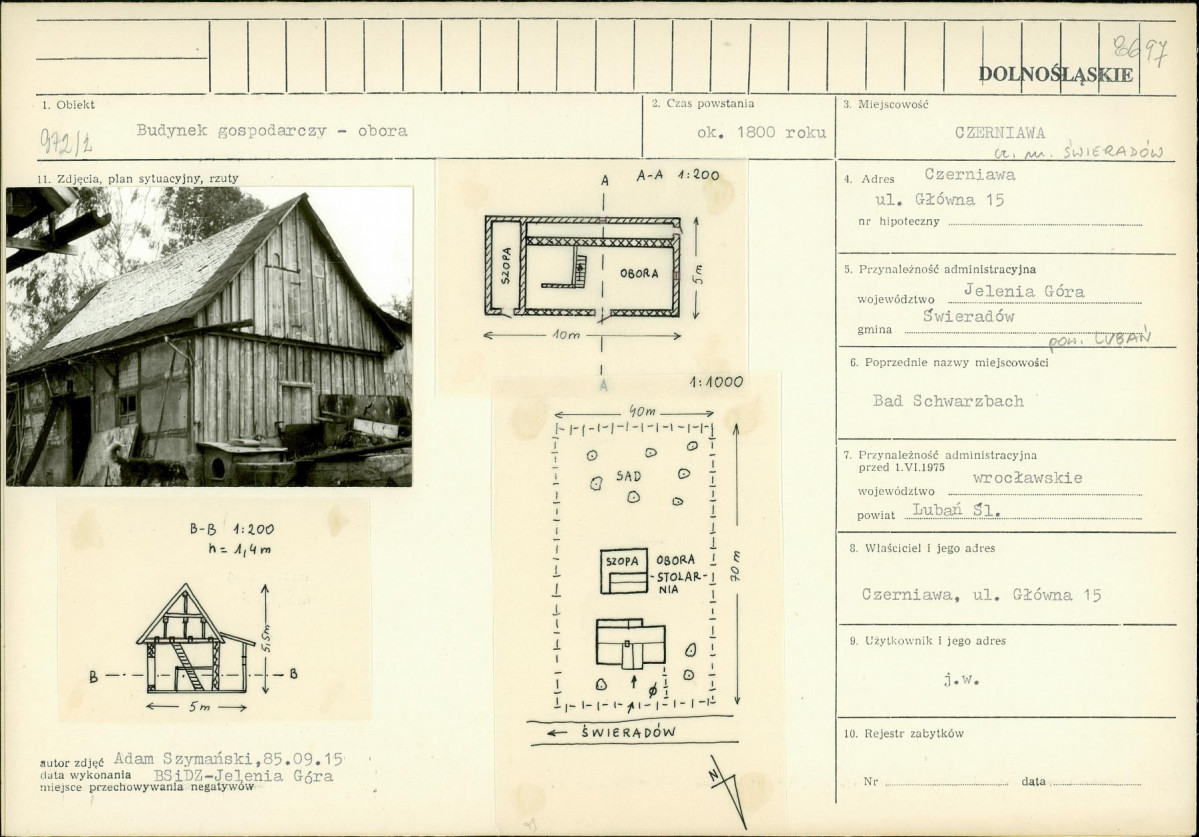 8697
DOLNOŚLĄSKIE
1. Obiekt
972/1
Budynek gospodarczy - obora
2. Czas powstania
ok. 1800 roku
3. Miejscowość
CZERNIAWA
cz. m. ŚWIERADÓW
11. Zdjęcia, plan sytuacyjny, rzuty
A A-A 1:200
SZOPA
OBORA
5m
10m
A
B-B 1:200
h = 1,4m
5,5m
B B
5m
1:1000
40m
SAD
70m
SZOPA OBORA
-STOLAR-
NIA
ŚWIERADÓW
N
autor zdjęć Adam Szymański,85.09.15
data wykonania BSiDZ-Jelenia Góra
miejsce przechowywania negatywów
4. Adres Czerniawa
ul. Główna 15
nr hipoteczny
5. Przynależność administracyjna
województwo Jelenia Góra
gmina Świeradów
pow. LUBAŃ
6. Poprzednie nazwy miejscowości
Bad Schwarzbach
7. Przynależność administracyjna
przed 1.VI.1975
województwo wrocławskie
powiat Lubań Śl.
8. Właściciel i jego adres
Czerniawa, ul. Główna 15
9. Użytkownik i jego adres
j.w.
10. Rejestr zabytków
Nr data